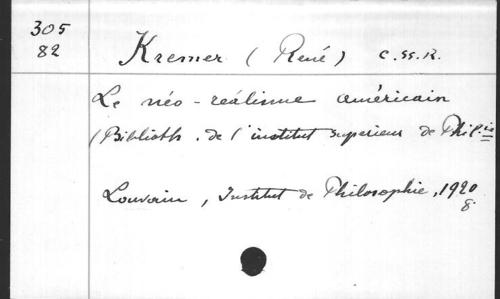 305
82
Kremer (René) C.SS.R.
Le néo-réalisme américain
(Biblioth. de l'institut superieur de Phil.ie
Louvain, Institut de Philosophie, 1920
8.